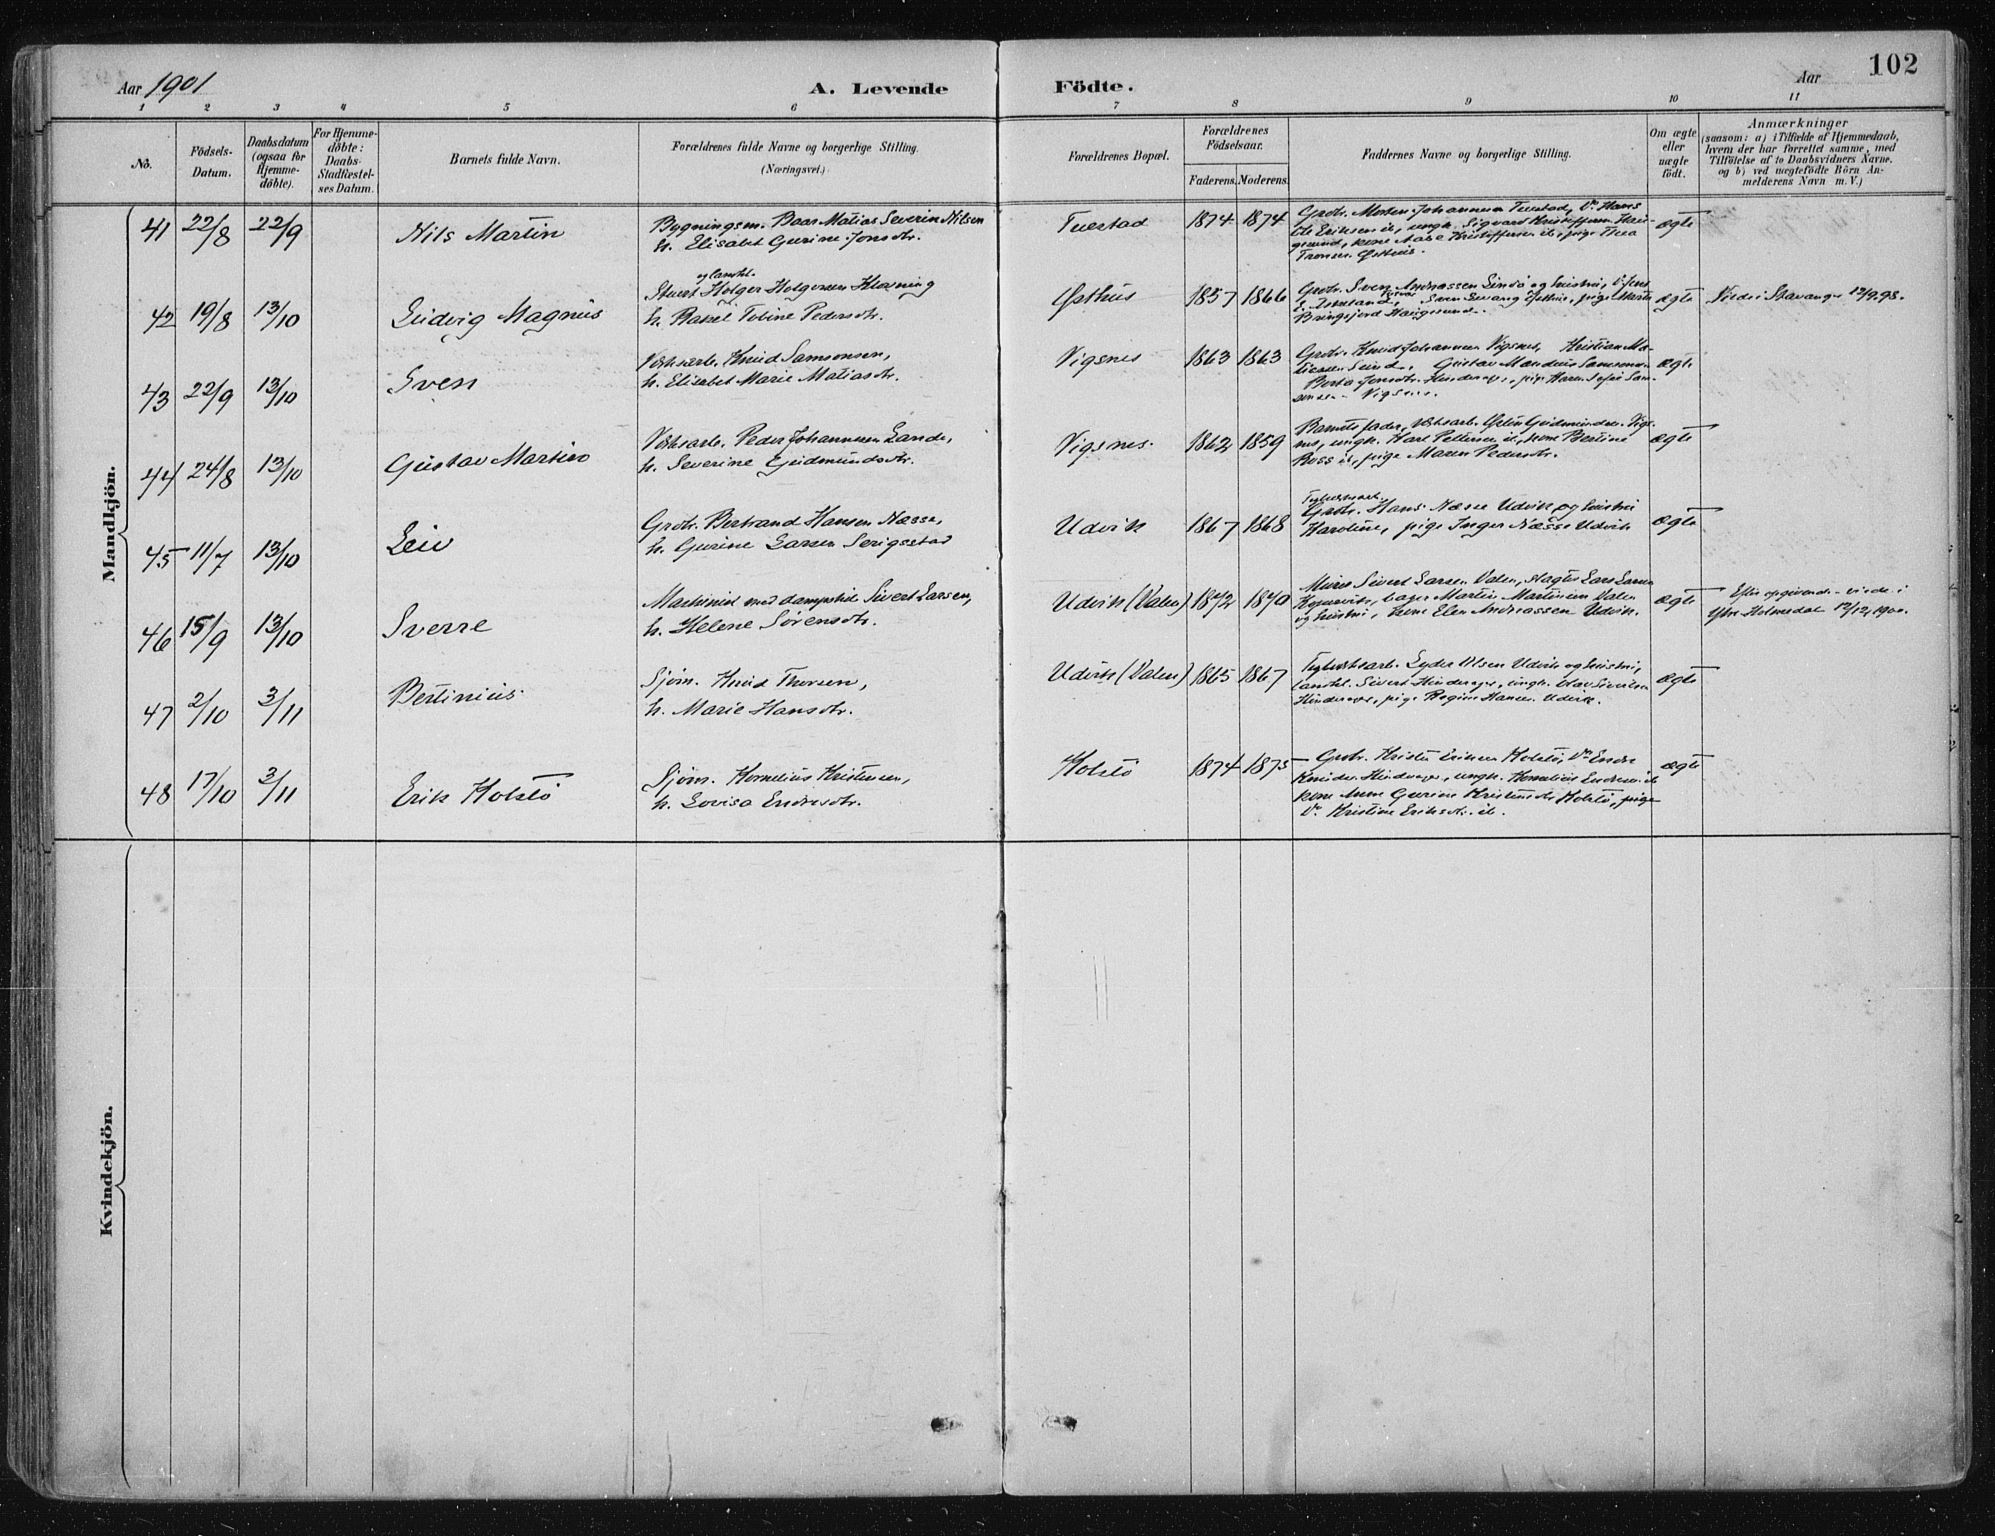 Aar 1901
A. Levende
Födte.
Aar
102
1 2 3 4 5 6 7 8 9 10 11
No.
Födsels-
Datum.
Daabsdatum
(ogsaa for
Hjemme-
döbte).
For Hjemme-
döbte:
Daabs-
Stadfæstel-
ses Datum.
Barnets fulde Navn.
Forældrenes fulde Navne og borgerlige Stilling.
(Næringsvei.)
Forældrenes Bopæl.
Forældrenes
Födselsaar.
Faderens. Moderens.
Faddernes Navne og borgerlige Stilling.
Om ægte
eller
uægte
födt.
Anmærkninger
(saasom: a) i Tilfælde af Hjemmedaab,
hvem der har forrettet samme, med
Tilföielse af to Daabsvidners Navne.
og b) ved uægtefödte Börn An-
melderens Navn m. V.)
Mandkjön.
41 22/8 22/9 Nils Martin
Bygningsm. Boas Matias Severin Nilsen
h. Elisabet Gurine Jonsdtr.
Tuestad 1874 1874
Grdbr. Morten Johannesen Tuestad, Do Hans
Eriksen ib, ungk. Sigvard Kristoffersen Hau-
gesund, kone Aase Kristoffersen ib, pige Thea
Tronsen Østhus.
ægte
42 19/8 13/10 Ludvig Magnus
og landh.
Stuert Holger Holgersen Kløvning
h. Rakel Tobine Pedersdtr.
Østhus 1857 1866
Grdbr. Sven Andreassen Lindø og hustru,
Sven Østhus, pige Marta
Bringsjord Haugesund.
ægte
Viede i Stavanger 12/9.98.
43 22/9 13/10 Sven
Verksarb. Knud Samsonsen,
h. Elisabet Marie Matiasdtr.
Vigsnes 1863 1863
Grdbr. Knud Johannesen Vigsnes, Kristian Ma-
tiesen Sund, Gustav Mandius Samsonsen
Berta Jonsdtr. pige Karen Sofie Sam-
sonsen Vigsnes.
ægte
44 24/8 13/10 Gustav Martin
Verksarb. Peder Johannesen Lande,
h. Severine Gudmundsdtr.
Vigsnes. 1862 1859
Barnets fader, verksarb. Gudmundsen Vigs-
nes, ungk. Karl Pettersen ib, kone Bertine
Ross ib, pige Maren Pedersdtr.
ægte
45 11/7 13/10 Leiv
Grdbr. Bertrand Hansen Næsse,
h. Gurine Larsen Serigstad
Udvik 1867 1868
Teglverksarb.
Grdbr. Hans Næsse Udvik og hustru
Karoline, pige Inger Næsse Udvik
ægte
46 15/9 13/10 Sverre
Maskinist med dampskib Sivert Larsen,
h. Helene Sørensdtr.
Udvik (Valen) 1872 1870
Murer Sivert Larsen Valen, slagter Lars Larsen
Kopervik, bager Martin Martinsen Valen
og hustru, kone Elen Andreassen Udvik.
ægte
Efter opgivende viede i
Ytre Holmedal 12/12.1900.
47 2/10 3/11 Bertinius
Sjøm. Knud Thorsen,
h. Marie Hansdtr.
Udvik (Valen) 1865 1867
Teglverksarb. Lyder Olsen Udvik og hustru,
landh. Sivert Hinderager, ungk. Olav Sivertsen
Hinderager, pige Regine Hansen Udvik.
ægte
48 17/10 3/11 Erik Kolstø
Sjøm. Kornelius Kristensen,
h. Lovisa Endresdtr.
Kolstø 1874 1875
Grdbr. Kristen Eriksen Kolstø, Do Endre
Knudsen Hinderager, ungk. Kornelius Endresen ib
kone Anne Gurine Kristensdtr Kolstø, pige
Do Kristine Eriksdtr. ib.
ægte
Kvindekjön.